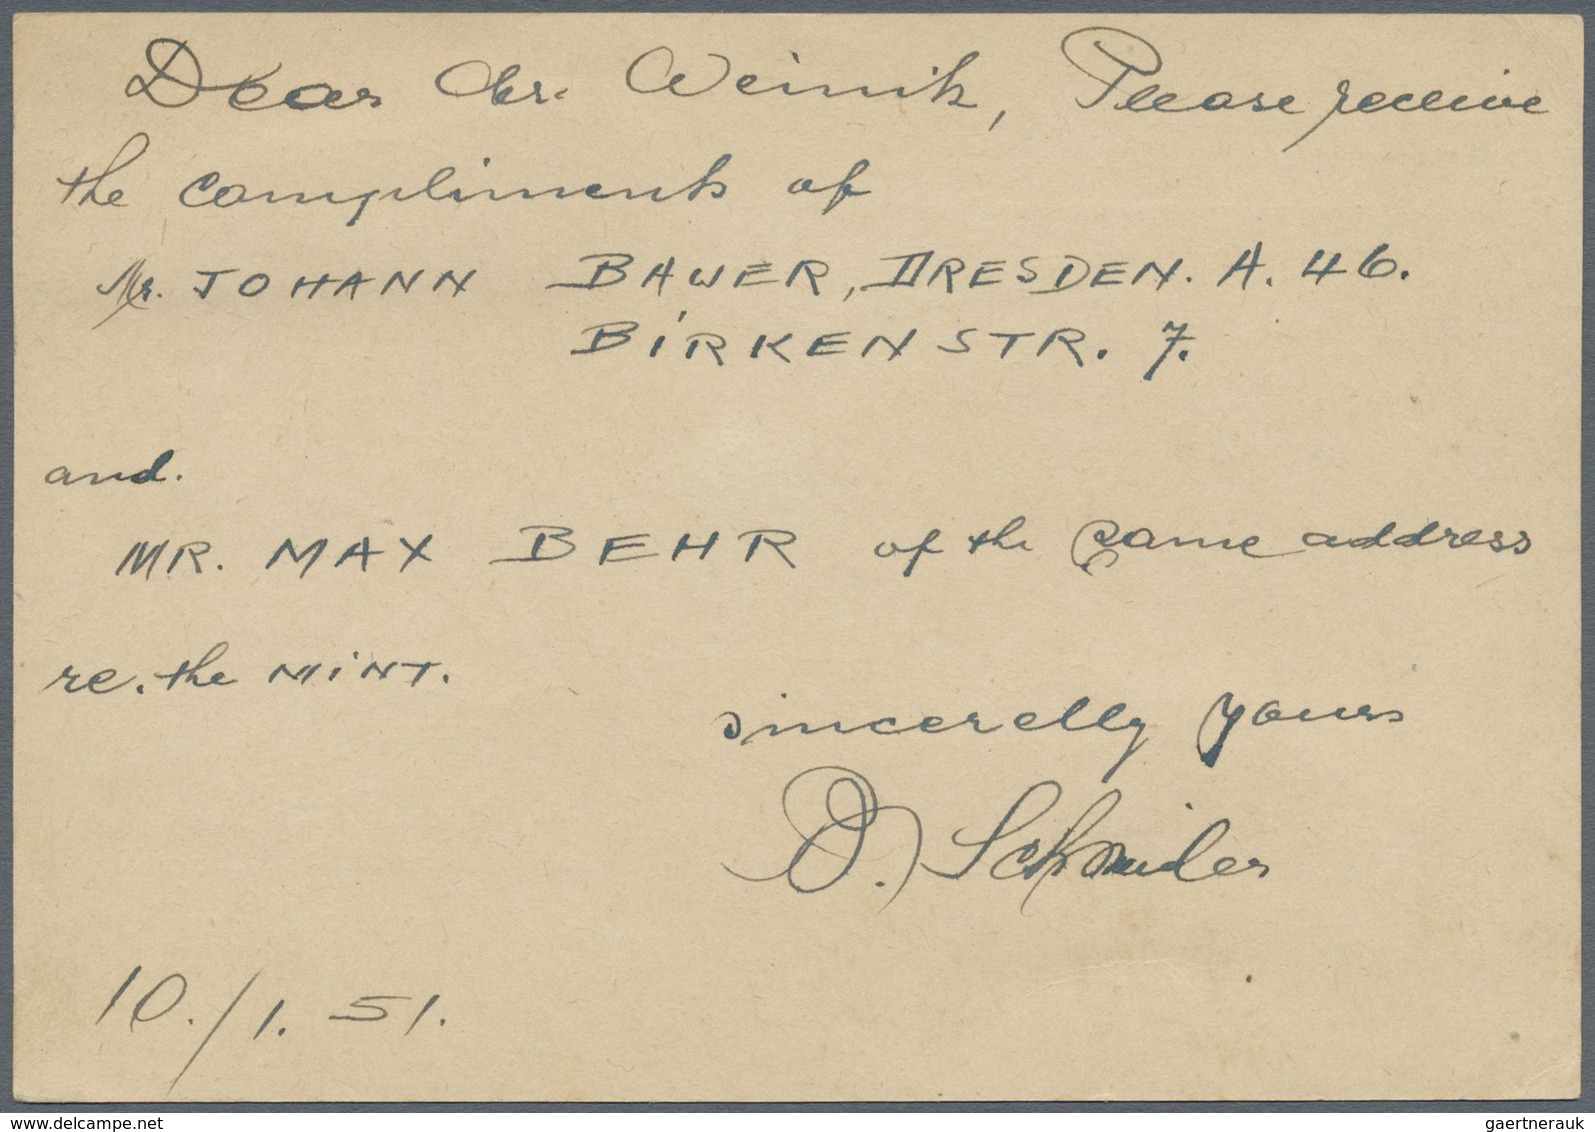 Dear Mr. Weinik, Please receive
the compliments of
Mr. JOHANN BAUER, DRESDEN. A. 46.
BIRKENSTR. 7.
and.
MR. MAX BEHR of the same address
re. the MINT.
sincerelly yours
O. Schmider
10./1. 51.
www.delcampe.net
gaertnerauk